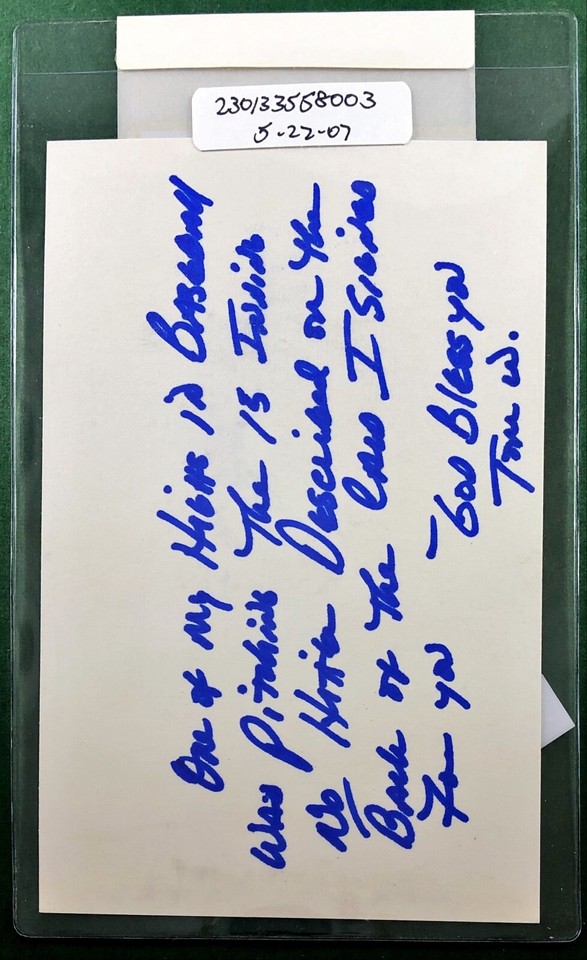 230133568003
5-22-07
One of my Highs in Baseball
was Pitching The 13 Inning
No Hitter Described on the
Back of The Card I Signed
For you
God Bless you
Tom W.